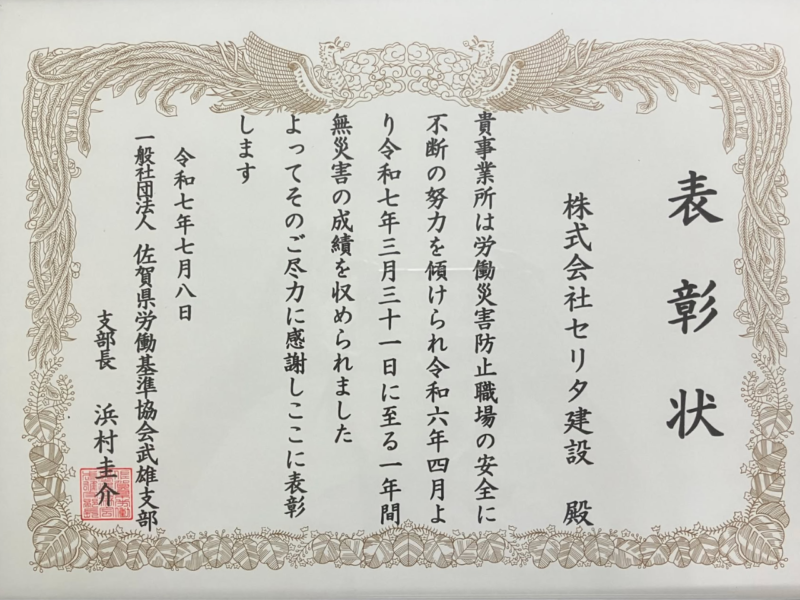 表彰状
株式会社セリタ建設 殿
貴事業所は労働災害防止職場の安全に
不断の努力を傾けられ令和六年四月よ
り令和七年三月三十一日に至る一年間
無災害の成績を収められました
よってそのご尽力に感謝しここに表彰
します
令和七年七月八日
一般社団法人 佐賀県労働基準協会武雄支部
支部長 浜村圭介